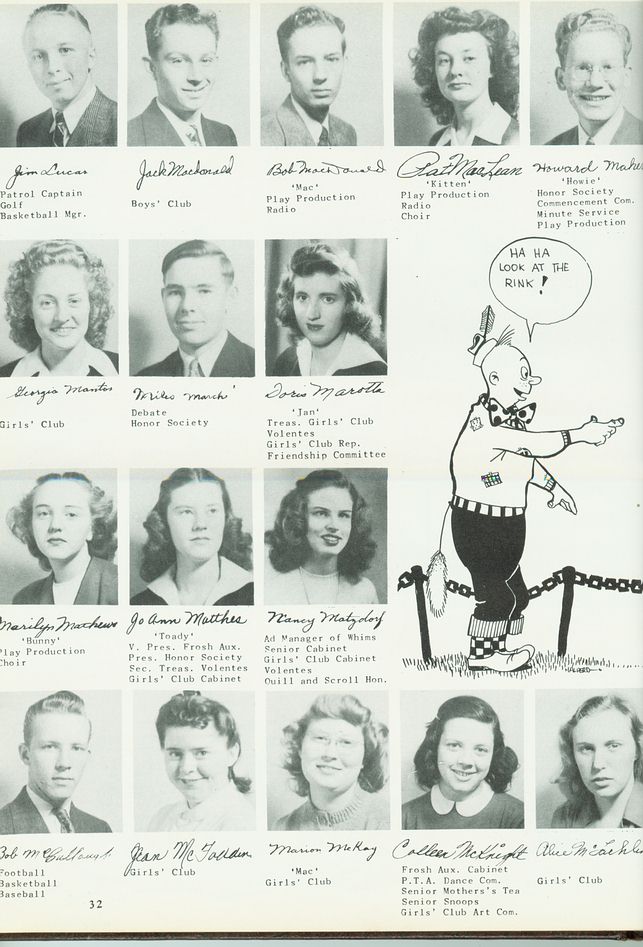 Jim Lucas
Patrol Captain
Golf
Basketball Mgr.
Jack Macdonald
Boys' Club
Bob MacDonald
'Mac'
Play Production
Radio
Pat MacLean
'Kitten'
Play Production
Radio
Choir
Howard
'Howie'
Honor Society
Commencement Com.
Minute Service
Play Production
HA HA
LOOK AT THE
RINK!
Georgia Mantis
Girls' Club
Miles March
Debate
Honor Society
Doris Marotta
'Jan'
Treas. Girls' Club
Volentes
Girls' Club Rep.
Friendship Committee
Marilyn Mathews
'Bunny'
Play Production
Choir
Jo Ann Matthes
'Toady'
V. Pres. Frosh Aux.
Pres. Honor Society
Sec. Treas. Volentes
Girls' Club Cabinet
Nancy Matzdorf
Ad Manager of Whims
Senior Cabinet
Girls' Club Cabinet
Volentes
Quill and Scroll Hon.
Bob McCullough
Football
Basketball
Baseball
Jean McFadden
Girls' Club
Marion McKay
'Mac'
Girls' Club
Colleen McKnight
Frosh Aux. Cabinet
P.T.A. Dance Com.
Senior Mothers's Tea
Senior Snoops
Girls' Club Art Com.
Girls' Club
32